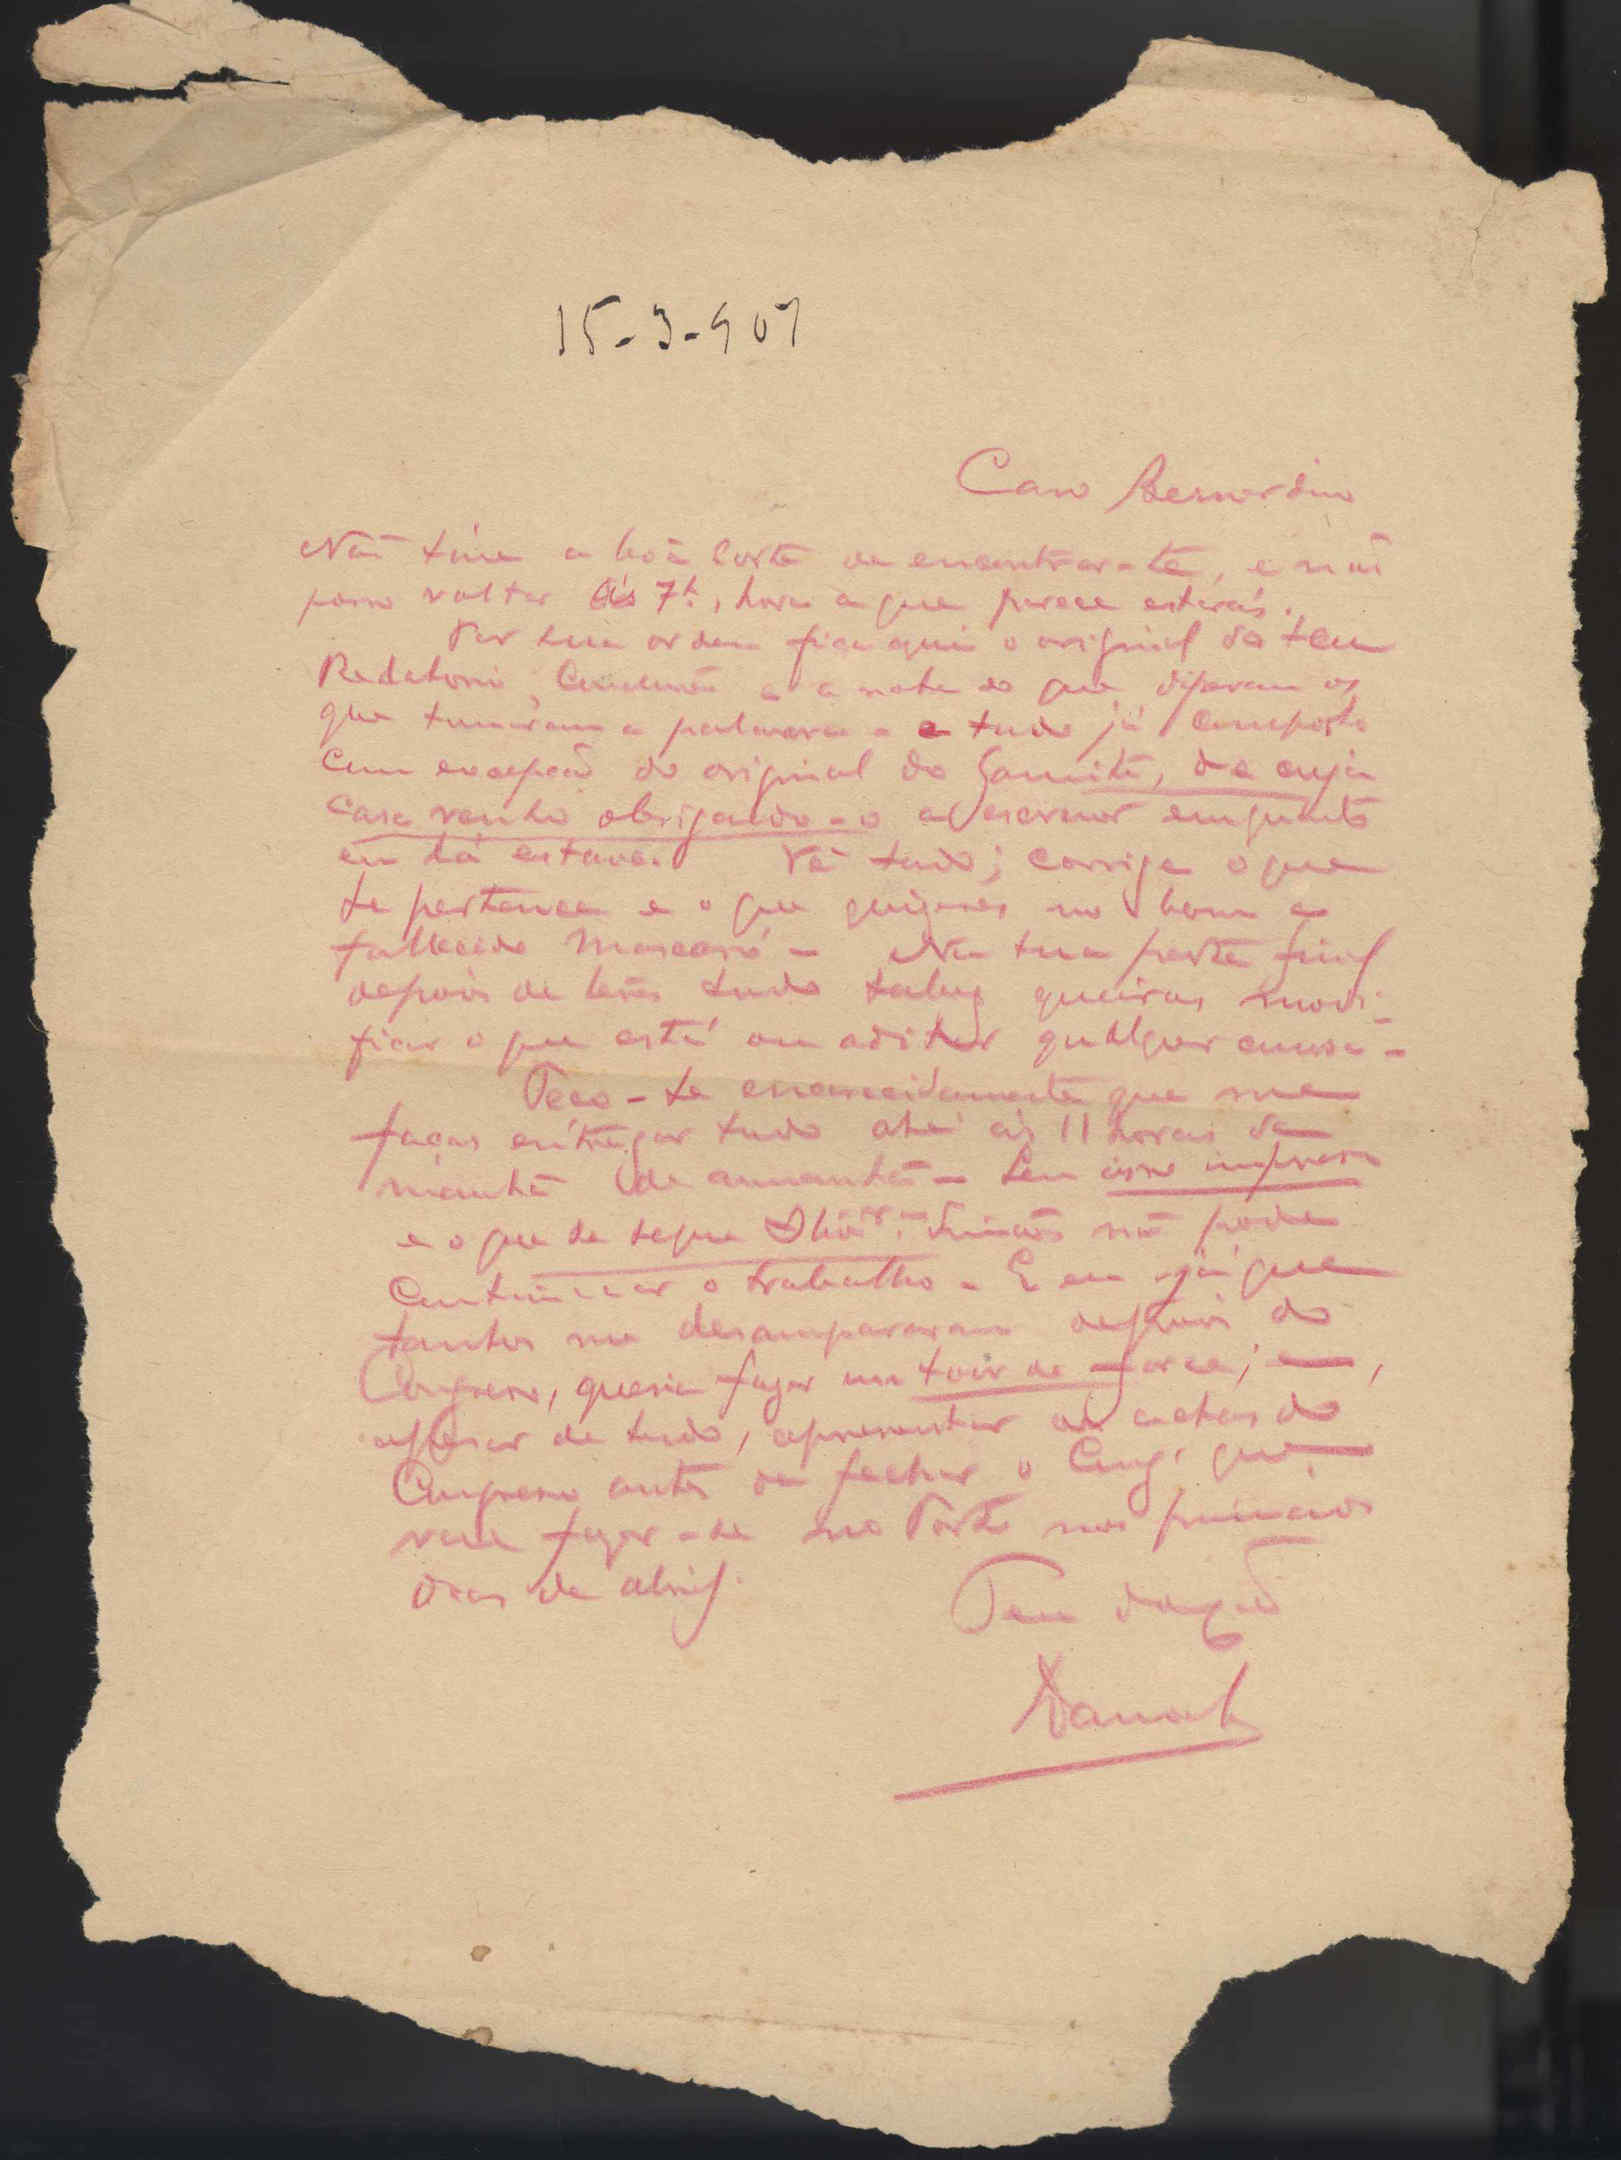 15-3-907
Caro Bernardino
Não tive a boa sorte de encontrar-te, e não
posso voltar ás 7h, hora a que parece estarás.
Por sua ordem fica aqui o original do teu
a nota do que disseram os
que tomaram a palavra - e tudo já composto
com excepção do original do de cuja
casa venho obrigando-o a escrever emquanto
eu lá estava. Vê tudo; corrige o que
te pertence e o que quizeres no bom e
fallecido Mascaró - Na tua parte final
depois de leres tudo talvez queiras modi-
ficar o que está ou aditar qualquer cousa -
Peço-te encarecidamente que me
faças entregar tudo até ás 11 horas da
manhã de amanhã - Sem isso impresso
e o que se segue não pode
continuar o trabalho - E eu já que
tantos me desampararam depois do
Congresso, queria fazer um tour de force; e,
apesar de tudo, apresentar as actas do
Congresso antes de fechar o Cong. que
vae fazer-se no Porto nos primeiros
dias de abril.
Teu